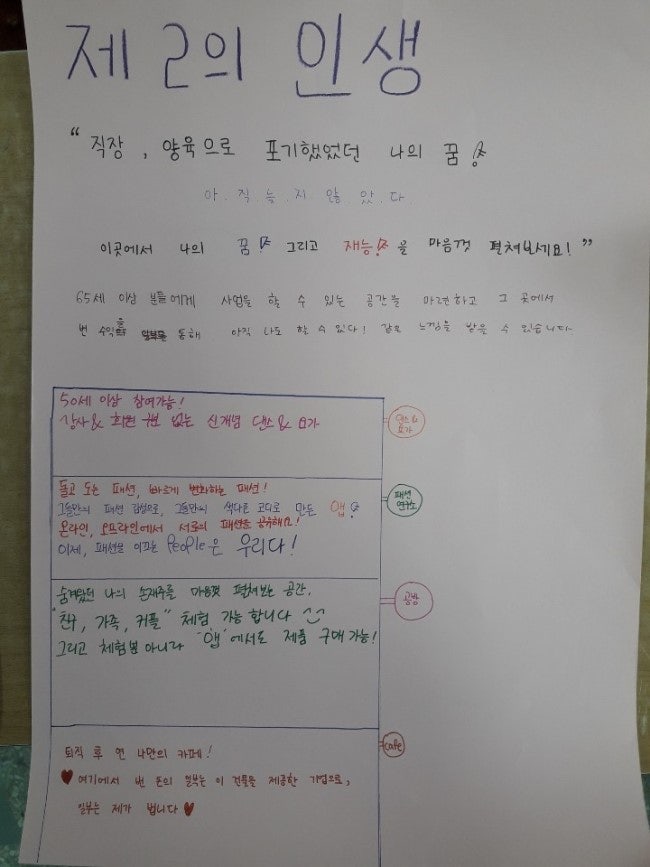 제 2의 인생
“ 직장, 양육으로 포기했었던 나의 꿈!
아.직.늦.지.않.았.다.
이곳에서 나의 꿈! 그리고 재능!을 마음껏 펼쳐보세요! ”
65세 이상 분들에게 사업을 할 수 있는 공간을 마련하고 그 곳에서
번 수익을 통해 아직 나도 할 수 있다! 같은 느낌을 받을 수 있습니다.
50세 이상 참여가능!
강사& 회원 구분 없는 신개념 댄스& 요가
댄스&
요가
돌고 도는 패션, 빠르게 변화하는 패션!
그들만의 패션 감성으로, 그들만의 색다른 코디로 만든 앱!
온라인, 오프라인에서 서로의 패션을 공유해요!
이제, 패션을 이끄는 People은 우리다!
패션
연구소
숨겨왔던 나의 손재주를 마음껏 펼쳐보는 공간.
"친구, 가족, 커플" 체험 가능합니다
그리고 체험뿐 아니라 '앱'에서도 제품 구매 가능!
공방
퇴직 후 연 나만의 카페!
♥ 여기에서 번 돈의 일부는 이 건물을 제공한 기업으로,
일부는 제가 법니다 ♥
cafe